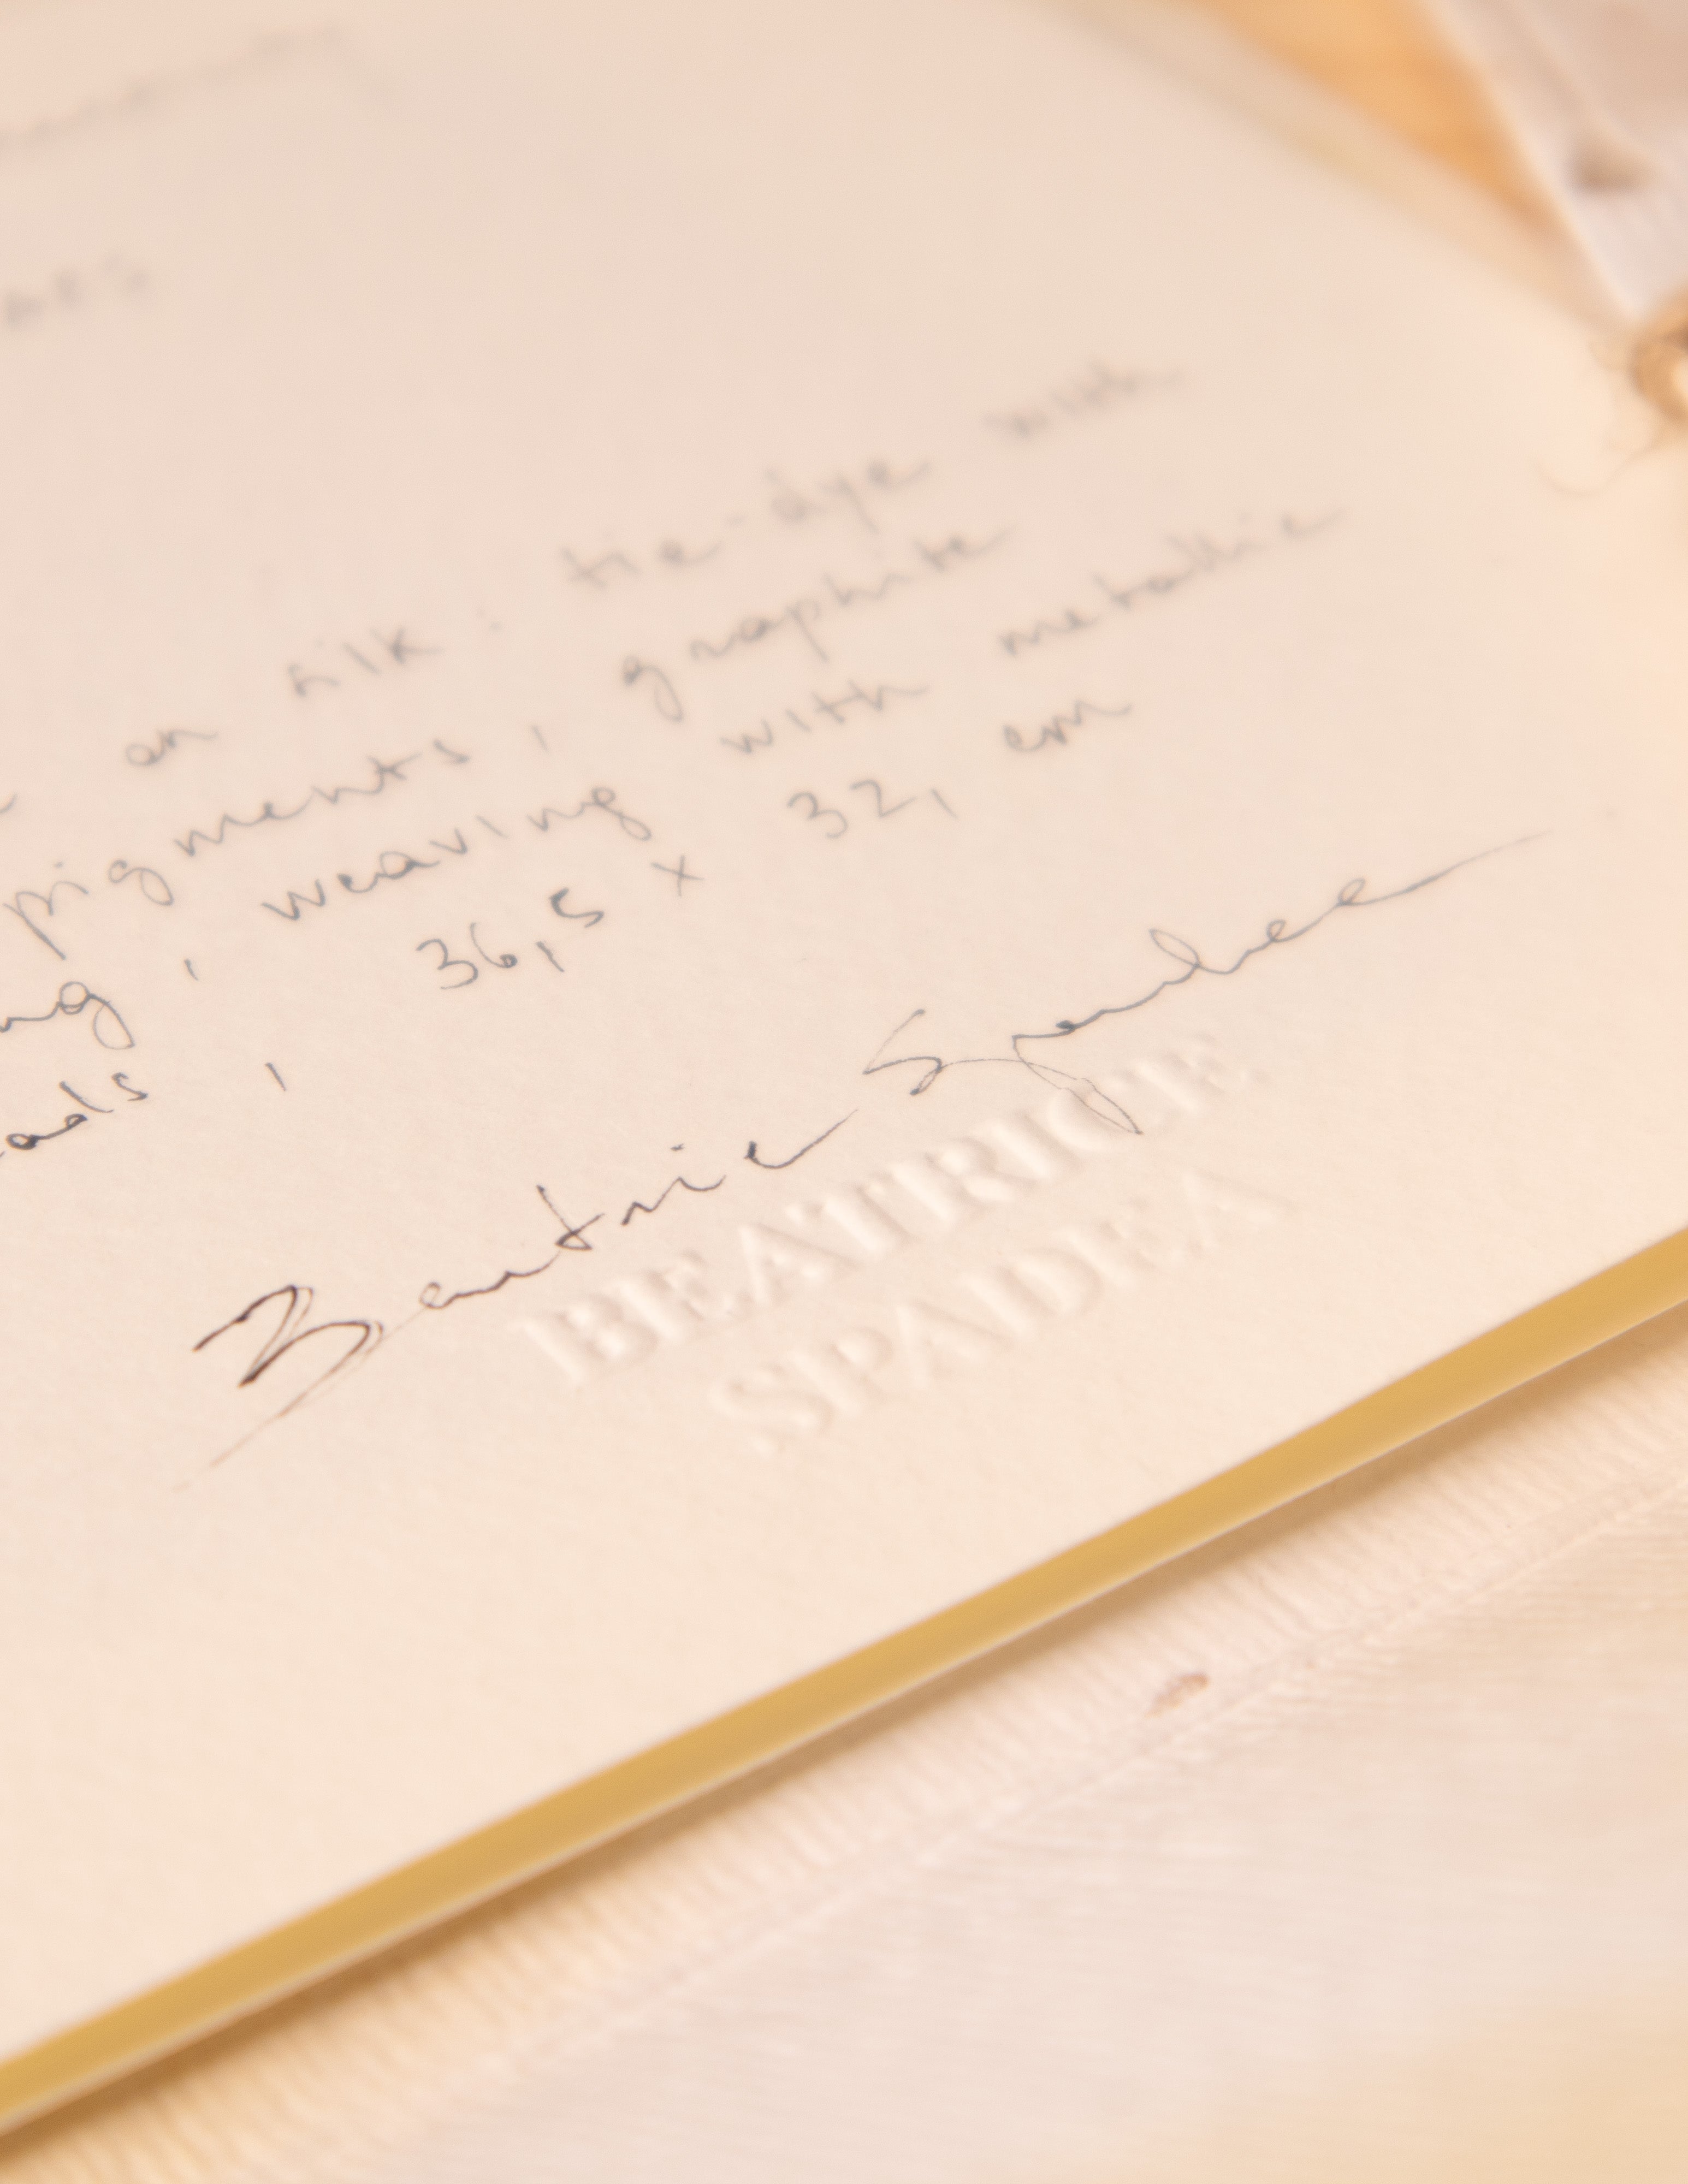 on silk : tie-dye with
pigments, graphite
, weaving with metallic
, 36,5 x 32, cm
Beatrice Spaidea
BEATRICE
SPAIDEA